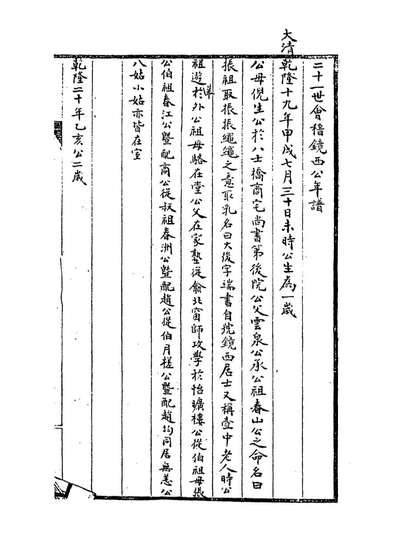 二十一世會稽鏡西公年譜
大清乾隆十九年甲戌七月三十日未時公生爲一歲
公母倪生公於八士橋商宅尚書第後院公父雲泉公承公祖春山公之命名曰
振祖取振振繩繩之意取乳名曰大復字瑞書自號鏡西居士又稱壺中老人時公
祖遊幕於外公祖母駱在堂公父在家塾從俞北窗師攻學於怡曠樓公從伯祖母張
公伯祖春江公暨配商公從叔祖春洲公暨配趙公從伯月槎公暨配趙均同居無恙公
八姑小姑亦皆在室
乾隆二十年乙亥公二歲